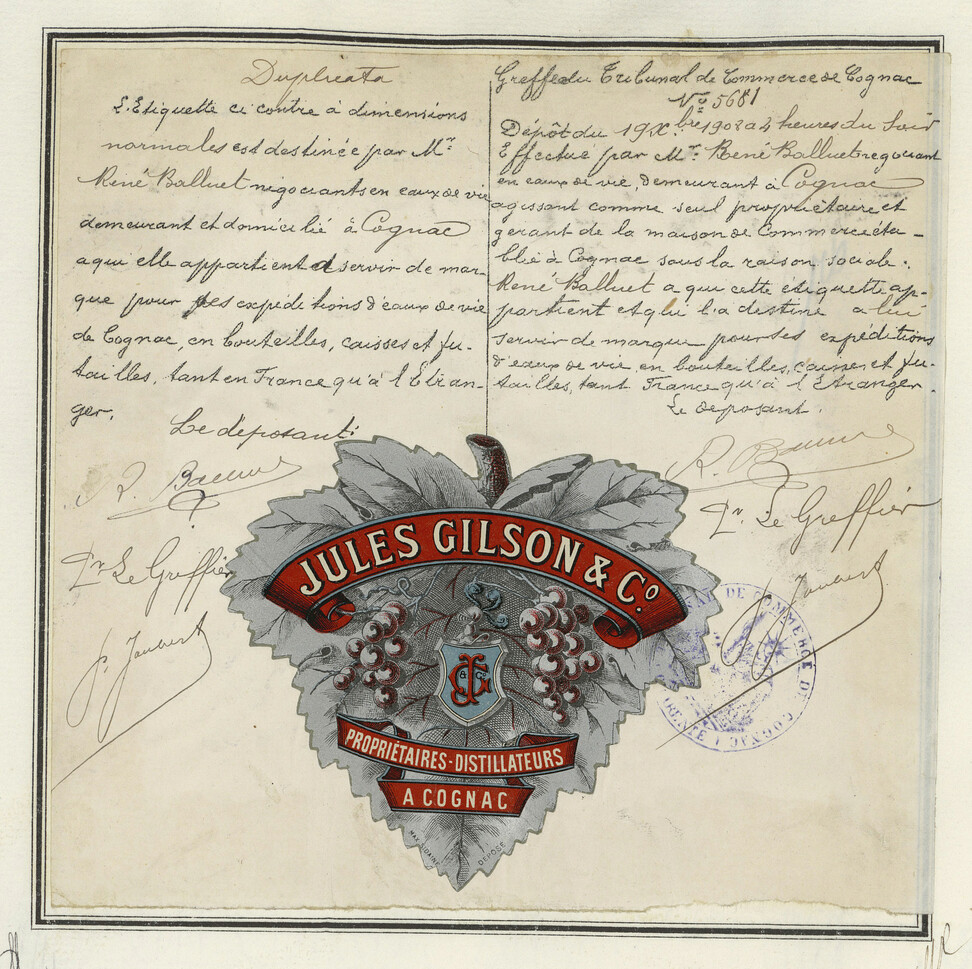 Duplicata
L'Etiquette ci contre à dimensions
normales est destinée par Mr
René Balluet négociants en eaux de vie
demeurant et domicilié à Cognac
a qui elle appartient à servir de mar-
que pour ses expéditions d'eaux de vie
de Cognac, en bouteilles, caisses et fu-
tailles, tant en France qu'à l'Etran-
ger.
Le déposant:
Pr Le Greffier
Greffe du Tribunal de Commerce de Cognac
No 5681
Dépôt du 19 Xbre 1902 a 4 heures du Soir
Effectué par Mr. René Balluet negociant
en eaux de vie, demeurant à Cognac
agissant comme seul propriétaire et
gerant de la maison de Commerce éta-
blie à Cognac sous la raison sociale:
René Balluet a qui cette etiquette ap-
partient et qui l'a destine a lui
servir de marque pour ses expéditions
d'eaux de vie en bouteilles, caisses et fu-
tailles, tant France qu'à l'Etranger.
Le deposant.
Pr Le Greffier
JULES GILSON & Co.
J & G
PROPRIÉTAIRES-DISTILLATEURS
A COGNAC
DÉPOSÉ
TRIBUNAL DE COMMERCE DE COGNAC